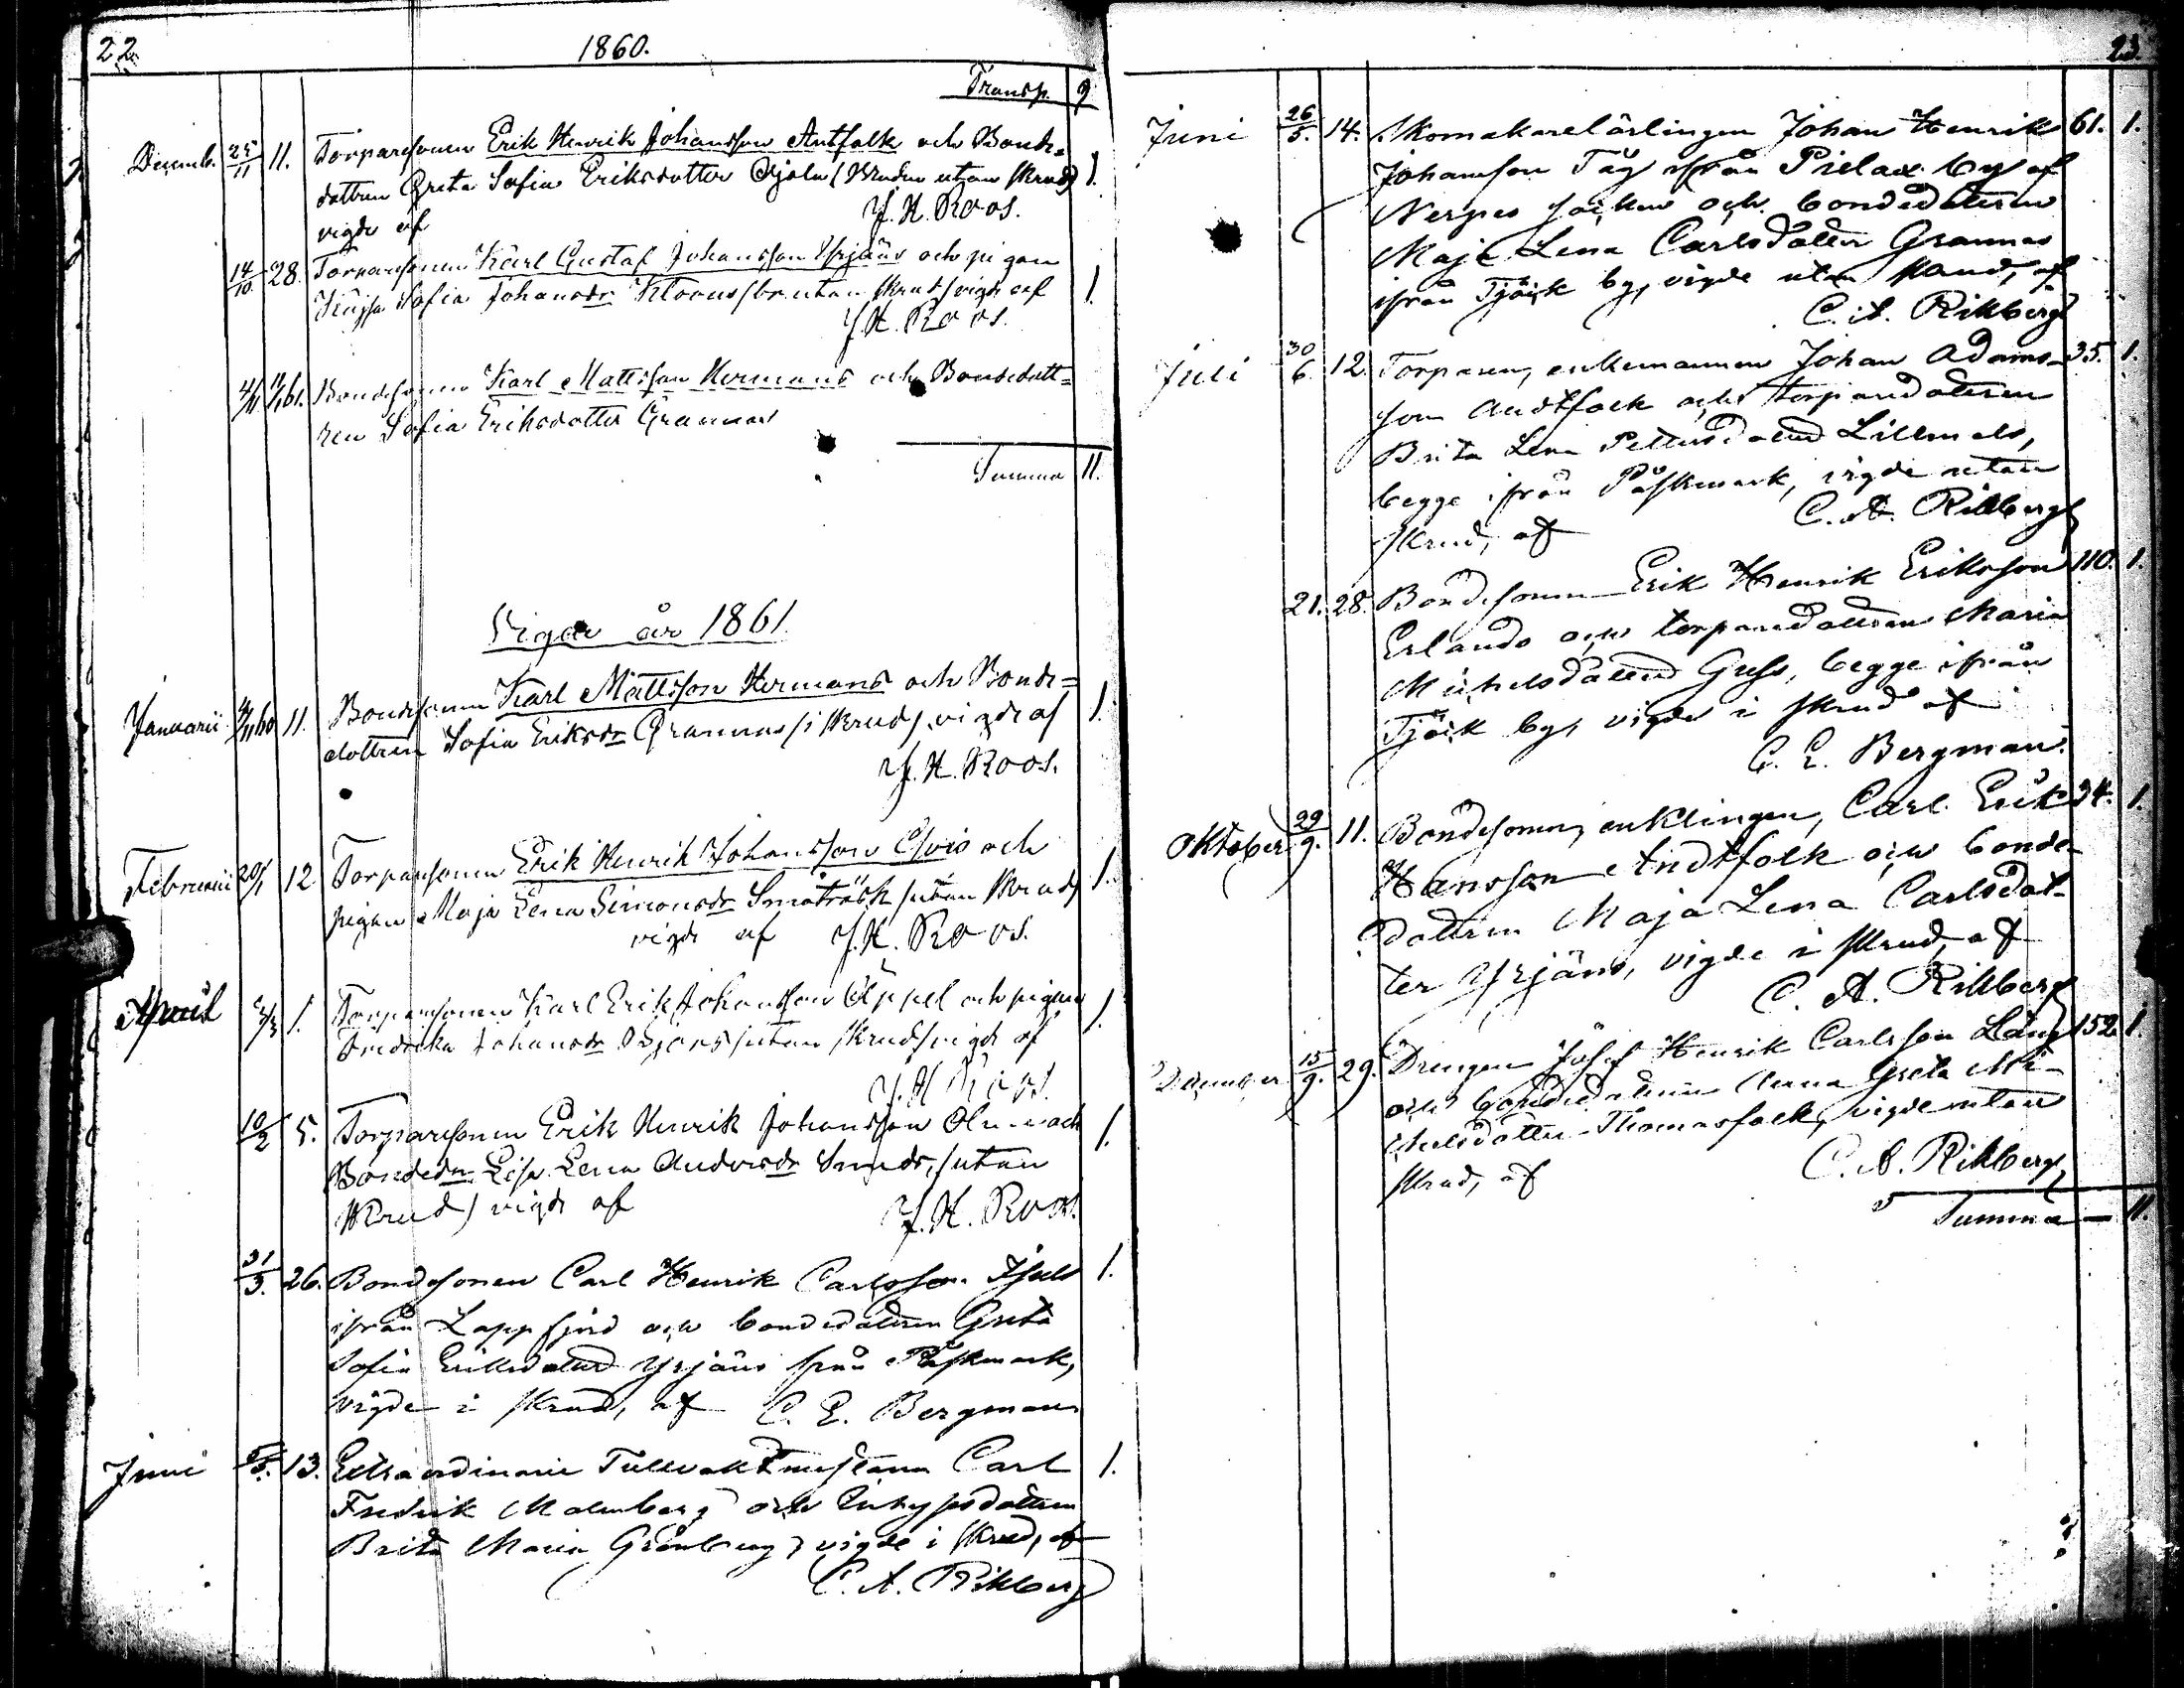 22 1860.
Transp. 9
Decemb. 25/11 11. Torparesonen Erik Henrik Johansson Antfolk och Bonde=
dottren Greta Sofia Eriksdotter (Bruden utan skrud) 1.
vigde af J. H. Roos.
14/10 28. Torparesonen Karl Gustaf Johansson Yrjans och pigan
Kajsa Sofia Johansdr Kloous utan skrud vigde af 1.
J. H. Roos.
4/11 11/1 61. Bondesonen Karl Mattsson Hermans och Bondedott=
ren Sofia Eriksdotter Grannas
Summa 11.
Vigde år 1861
Januarii 4/11 60 11. Bondesonen Karl Mattsson Hermans och Bonde=
dottren Sofia Eriksdr Grannas (i skrud) vigde af 1.
J. H. Roos.
Februarii 20/1 12 Torparesonen Erik Henrik Johansson och
pigan Maja Lena Simonsdr Småträsk (utan skrud) 1.
vigde af J. H. Roos.
April 3/3 1. Torparesonen Karl Erik Johansson Äppel och pigan
Fredrika Johansdr Björs (utan skrud) vigde af 1.
J. H. Roos.
10/2 5. Torparesonen Erik Henrik Johansson och 1.
Bondedr Lisa Lena Andersdr (utan
skrud) vigde af J. H. Roos.
31/3. 26. Bondesonen Carl Henrik Carlsson 1.
ifrån Lappfjerd och bondedottren Greta
Sofia Eriksdotter Yrjans från Påskmark,
vigde i skrud, af C. E. Bergman
Juni 13. Extraordinarie Tullvaktmästaren Carl 1.
Fredrik Malmberg och Enhysesdottren
Brita Maria Grönberg, vigde i skrud, af
C. A. Rikberg
23.
Juni 26/5. 14. Skomakarelärlingen Johan Henrik 61. 1.
Johansson Täg ifrån Pielax by af
Nerpes socken och bondedottren
Maja Lena Carlsdotter Grannas
ifrån Tjöck by, vigde utan skrud, af
C. A. Rikberg
Juli 30/6. 12. Torparen, enkemannen Johan Adams- 35. 1.
son Andtfolk och torparedottren
Brita Lena Pettersdotter Lillmåls,
begge ifrån Påskmark, vigde utan
skrud, af C. A. Rikberg
21. 28. Bondesonen Erik Henrik Eriksson 110. 1.
Erlands och torparedottren Maria
Michelsdotter Guss, begge ifrån
Tjöck by, vigde i skrud af
C. E. Bergman.
Oktober 29/9. 11. Bondesonen, enklingen, Carl Erik 34. 1.
Hansson Andtfolk och bonde-
dottren Maja Lena Carlsdot-
ter Yrjäns, vigde i skrud, af
C. A. Rikberg
December 15/9. 29. Drengen Josef Henrik Carlsson Lång 152. 1.
och bondedottren Anna Greta Mi-
chelsdotter Thomasfolk, vigde utan
skrud, af C. A. Rikberg
Summa — 11.